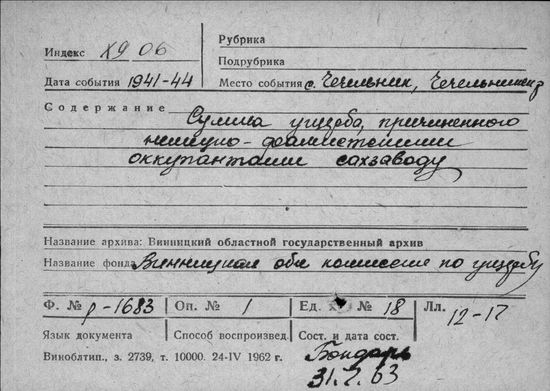 Рубрика
Индекс Х9 06
Подрубрика
Дата события 1941-44 Место события с. Чечельник, Чечельницк. р
Содержание Сумма ущерба, причиненного
немецко-фашистскими
оккупантами сахзаводу
Название архива: Винницкий областной государственный архив
Название фонда Винницкая обл комиссия по ущербу
Ф. № р-1683 Оп. № 1 Ед. № 18 Лл. 12-17
Язык документа Способ воспроизвед. Сост. и дата сост.
Виноблтип., з. 2739, т. 10000. 24-IV 1962 г. Бондарь
31.7.63